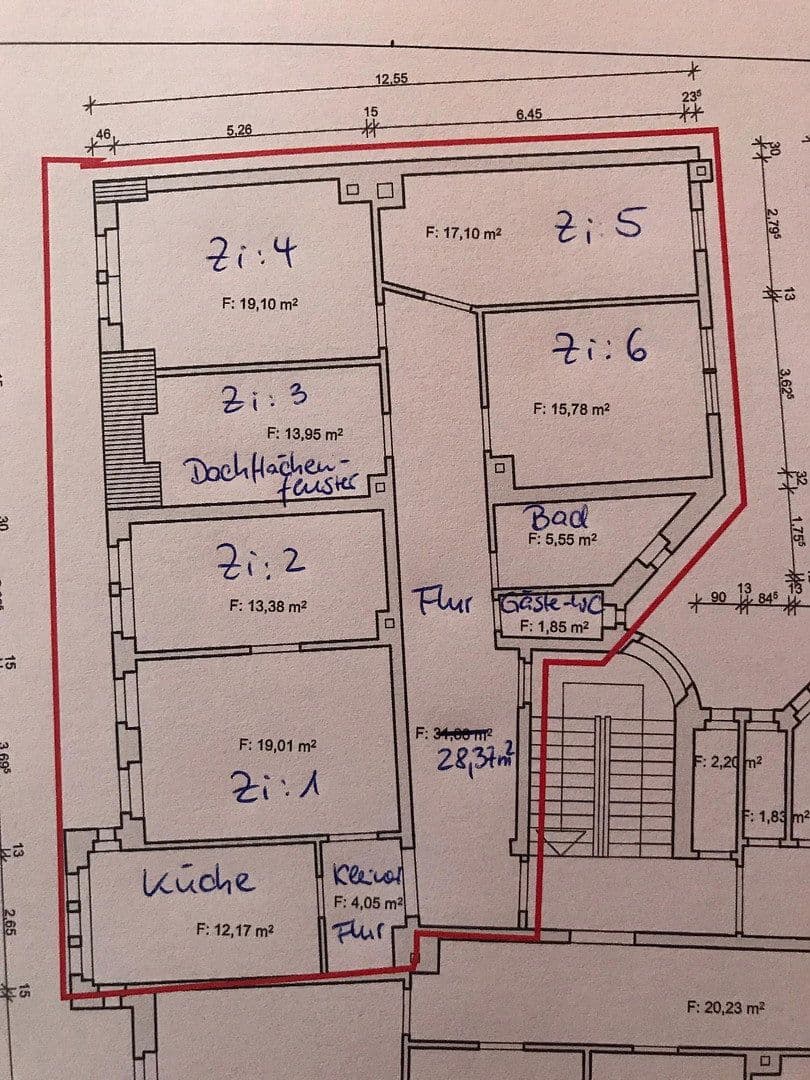 12.55
46
5.26
15
6.45
23⁵
30
2.79⁵
13
3.62⁵
32
1.75⁵
13
90
13
84⁵
Zi: 4
F: 19,10 m²
F: 17,10 m²
Zi: 5
Zi: 3
F: 13,95 m²
Dachflächen-
fenster
Zi: 6
F: 15,78 m²
Zi: 2
F: 13,38 m²
Bad
F: 5,55 m²
Flur
Gäste-WC
F: 1,85 m²
F: 19,01 m²
Zi: 1
F: 34,00 m²
28,37m²
F: 2,20 m²
F: 1,83 m²
Küche
F: 12,17 m²
Kleiner
F: 4,05 m²
Flur
F: 20,23 m²
30
15
3.69⁵
13
2.65
15